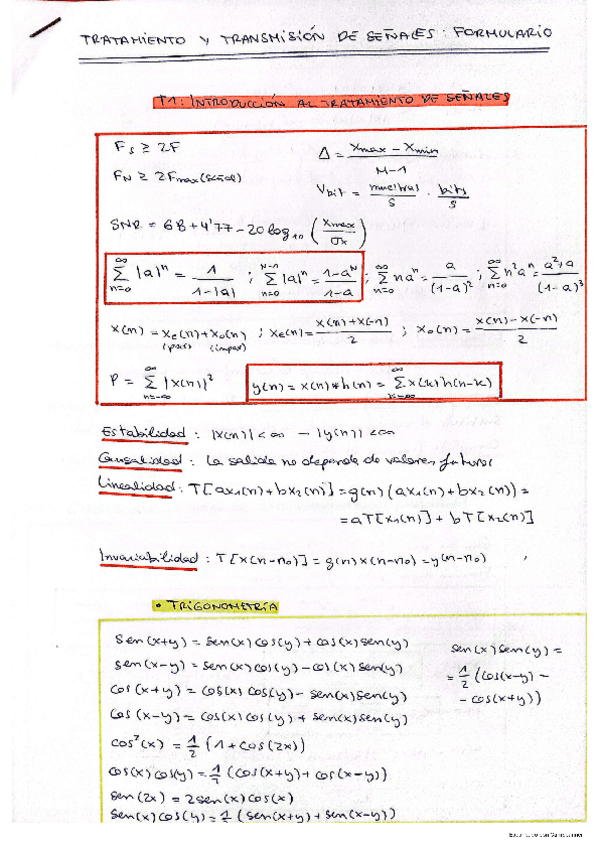 TRATAMIENTO Y TRANSMISIÓN DE SEÑALES: FORMULARIO
T1: INTRODUCCIÓN AL TRATAMIENTO DE SEÑALES
Fs ≥ 2F
Δ = (Xmax − Xmin) / (M−1)
FN ≥ 2Fmax (señal)
Vbit = muestras/s · bits/s
SNR = 6B + 4'77 − 20 log10 (Xmax/σx)
∑_{n=0}^{∞} |a|^n = 1/(1−|a|) ; ∑_{n=0}^{N−1} |a|^n = (1−a^N)/(1−a) ; ∑_{n=0}^{∞} n a^n = a/(1−a)^2 ; ∑_{n=0}^{∞} n^2 a^n = (a^2+a)/(1−a)^3
x(n) = xe(n) + xo(n) ; xe(n) = (x(n)+x(-n))/2 ; xo(n) = (x(n)−x(−n))/2
(par) (impar)
P = ∑_{n=−∞}^{∞} |x(n)|^2
y(n) = x(n) * h(n) = ∑_{k=−∞}^{∞} x(k) h(n−k)
Estabilidad : |x(n)| < ∞ − |y(n)| < ∞
Causalidad : La salida no depende de valores futuros
Linealidad : T[ax1(n)+bx2(n)] = g(n) (ax1(n)+bx2(n)) =
= aT[x1(n)] + bT[x2(n)]
Invariabilidad : T[x(n−n0)] = g(n) x(n−n0) = y(n−n0)
• TRIGONOMETRÍA
sen(x+y) = sen(x)cos(y) + cos(x)sen(y)
sen(x−y) = sen(x)cos(y) − cos(x)sen(y)
cos(x+y) = cos(x)cos(y) − sen(x)sen(y)
cos(x−y) = cos(x)cos(y) + sen(x)sen(y)
cos²(x) = 1/2 (1+cos(2x))
cos(x)cos(y) = 1/2 (cos(x+y) + cos(x−y))
sen(2x) = 2sen(x)cos(x)
sen(x)cos(y) = 1/2 (sen(x+y) + sen(x−y))
sen(x)sen(y) =
= 1/2 (cos(x−y) −
− cos(x+y))